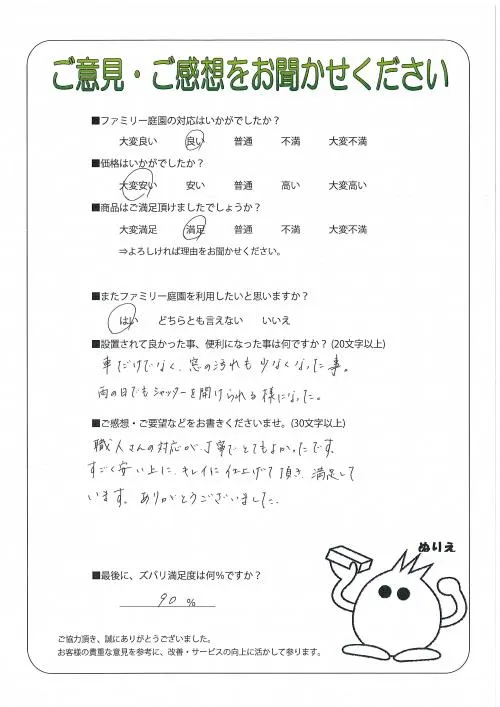 ご意見・ご感想をお聞かせください
■ファミリー庭園の対応はいかがでしたか?
大変良い 良い 普通 不満 大変不満
■価格はいかがでしたか?
大変安い 安い 普通 高い 大変高い
■商品はご満足頂けましたでしょうか?
大変満足 満足 普通 不満 大変不満
⇒よろしければ理由をお聞かせください。
■またファミリー庭園を利用したいと思いますか?
はい どちらとも言えない いいえ
■設置されて良かった事、便利になった事は何ですか? (20文字以上)
車だけでなく、窓の汚れも少なくなった事。
雨の日でもシャッターを開けられる様になった。
■ご感想・ご要望などをお書きくださいませ。(30文字以上)
職人さんの対応が丁寧でとてもよかったです。
すごく安い上に、キレイに仕上げて頂き、満足して
います。ありがとうございました。
ぬりえ
■最後に、ズバリ満足度は何%ですか?
90 %
ご協力頂き、誠にありがとうございました。
お客様の貴重な意見を参考に、改善・サービスの向上に活かして参ります。